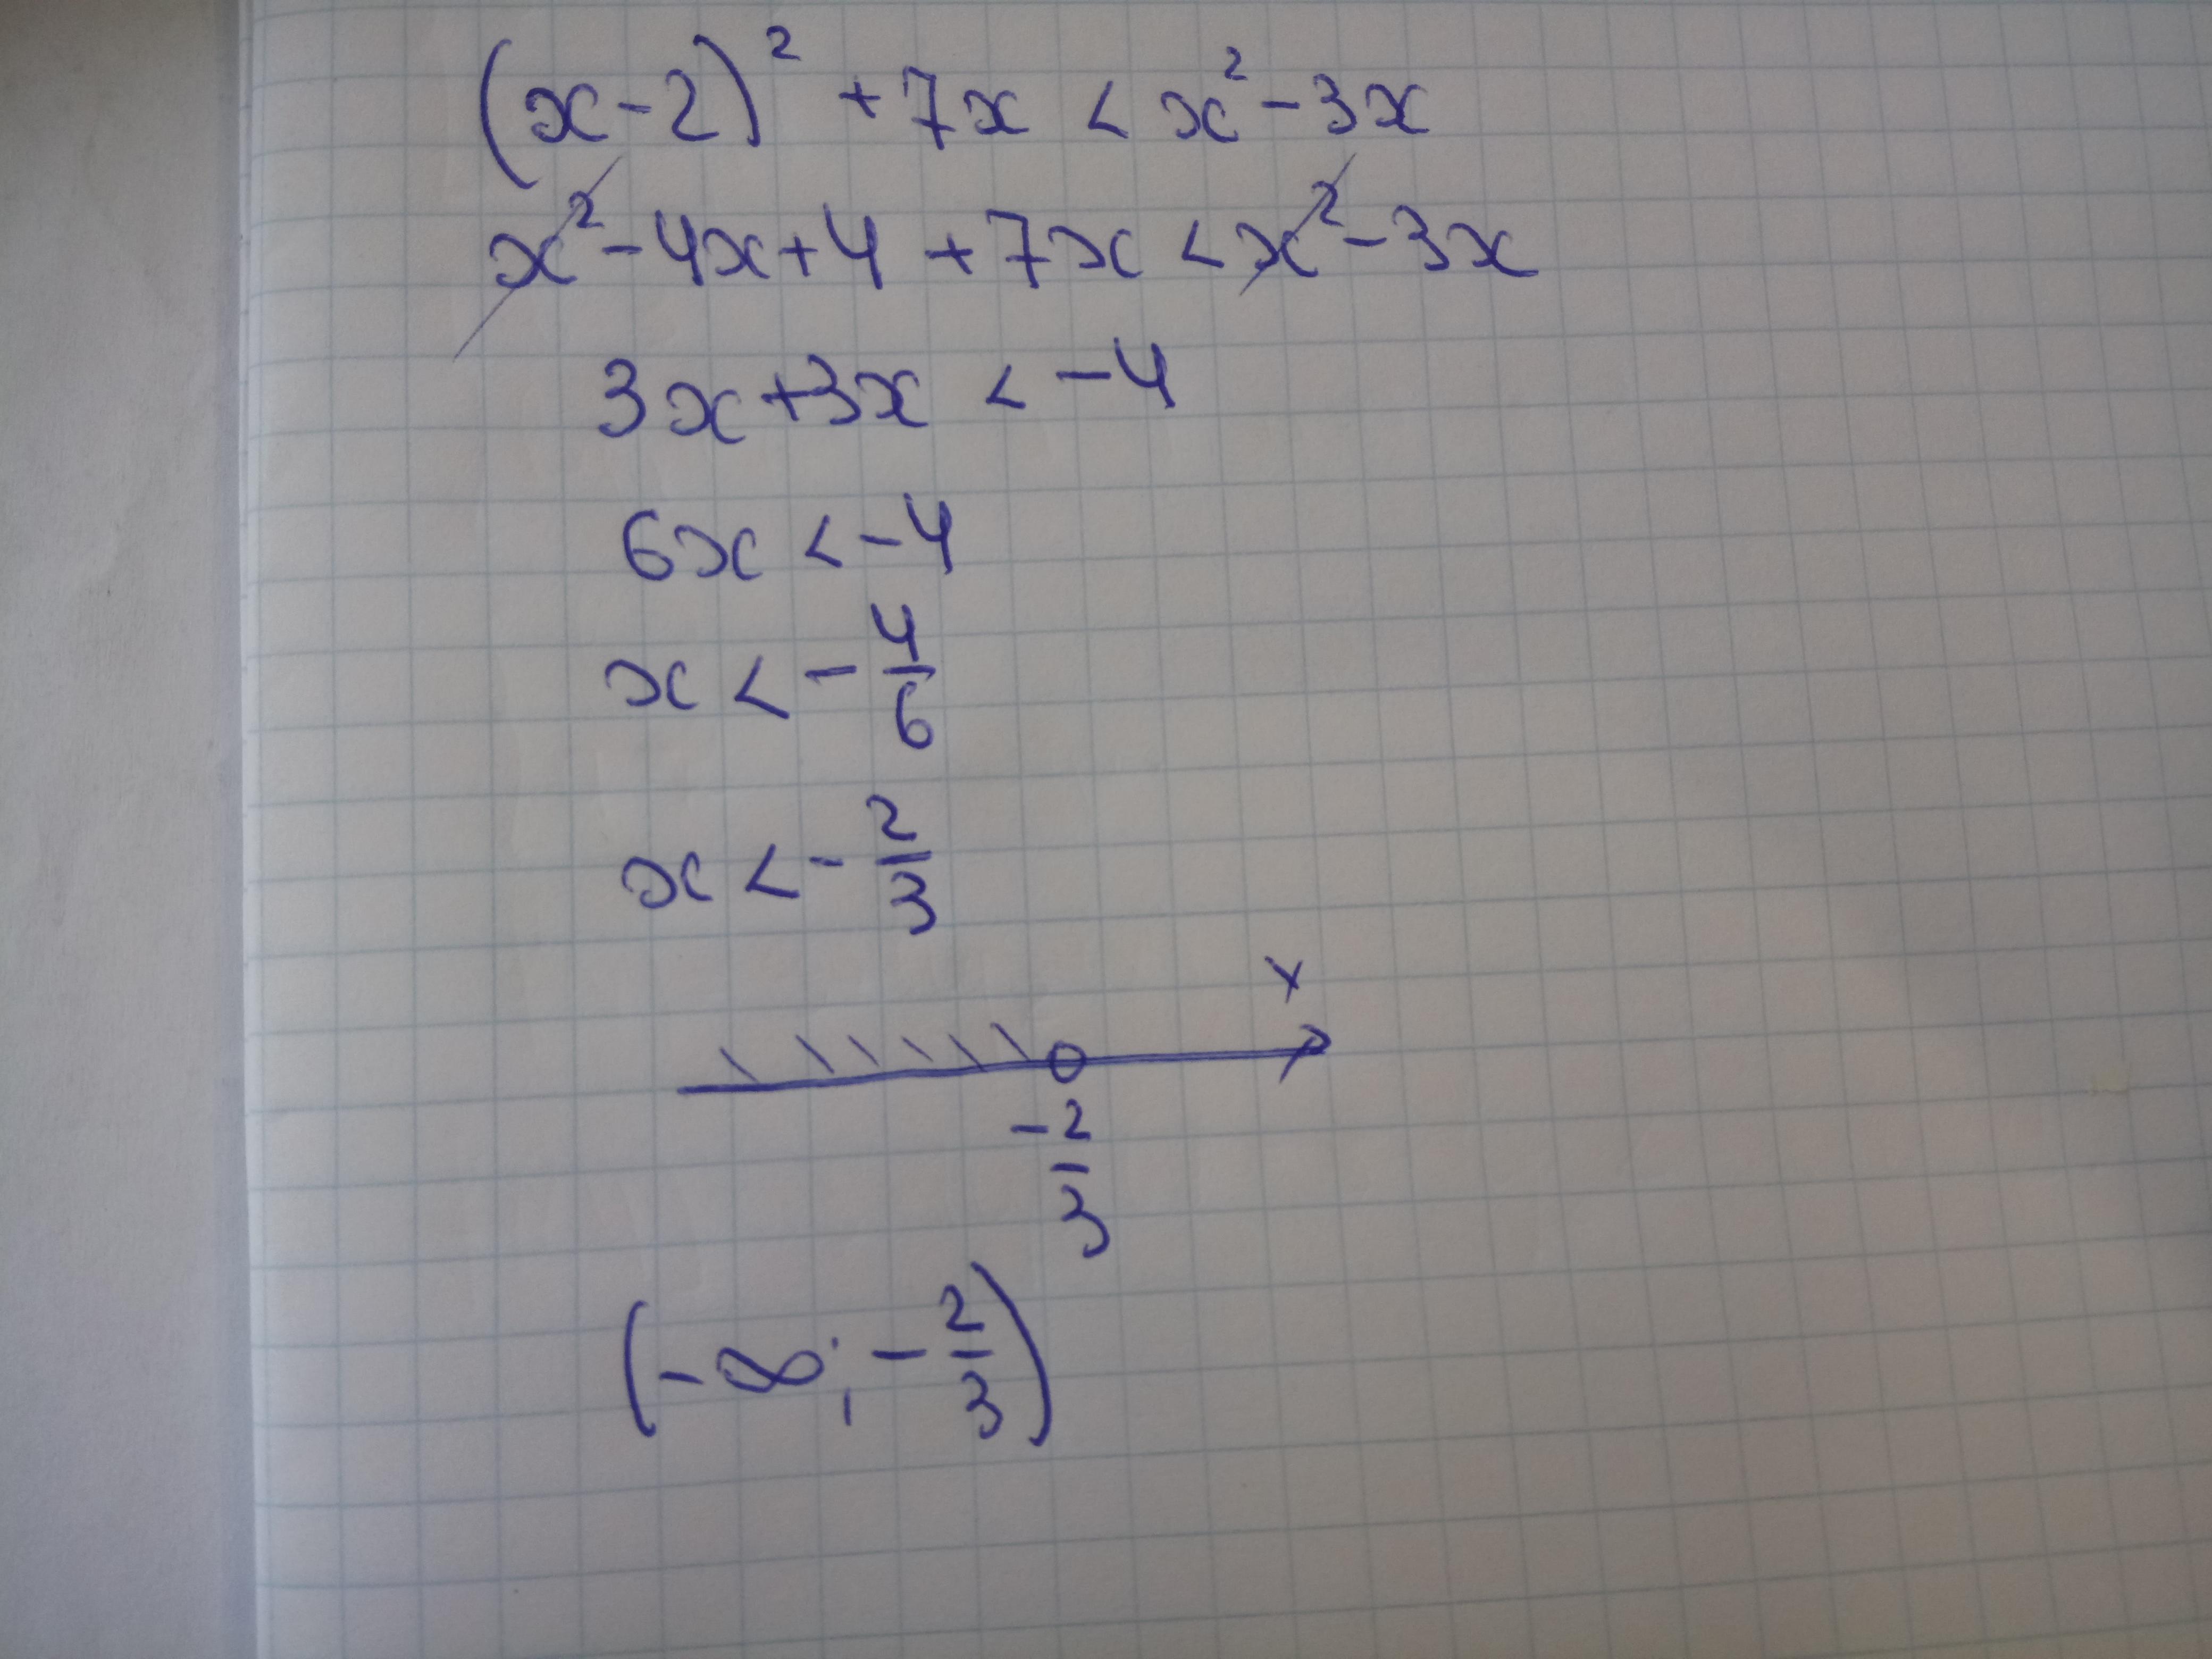 (x-2)² + 7x < x² - 3x
x² - 4x + 4 + 7x < x² - 3x
3x + 3x < -4
6x < -4
x < - 4/6
x < - 2/3
x
-2/3
(-∞; - 2/3)